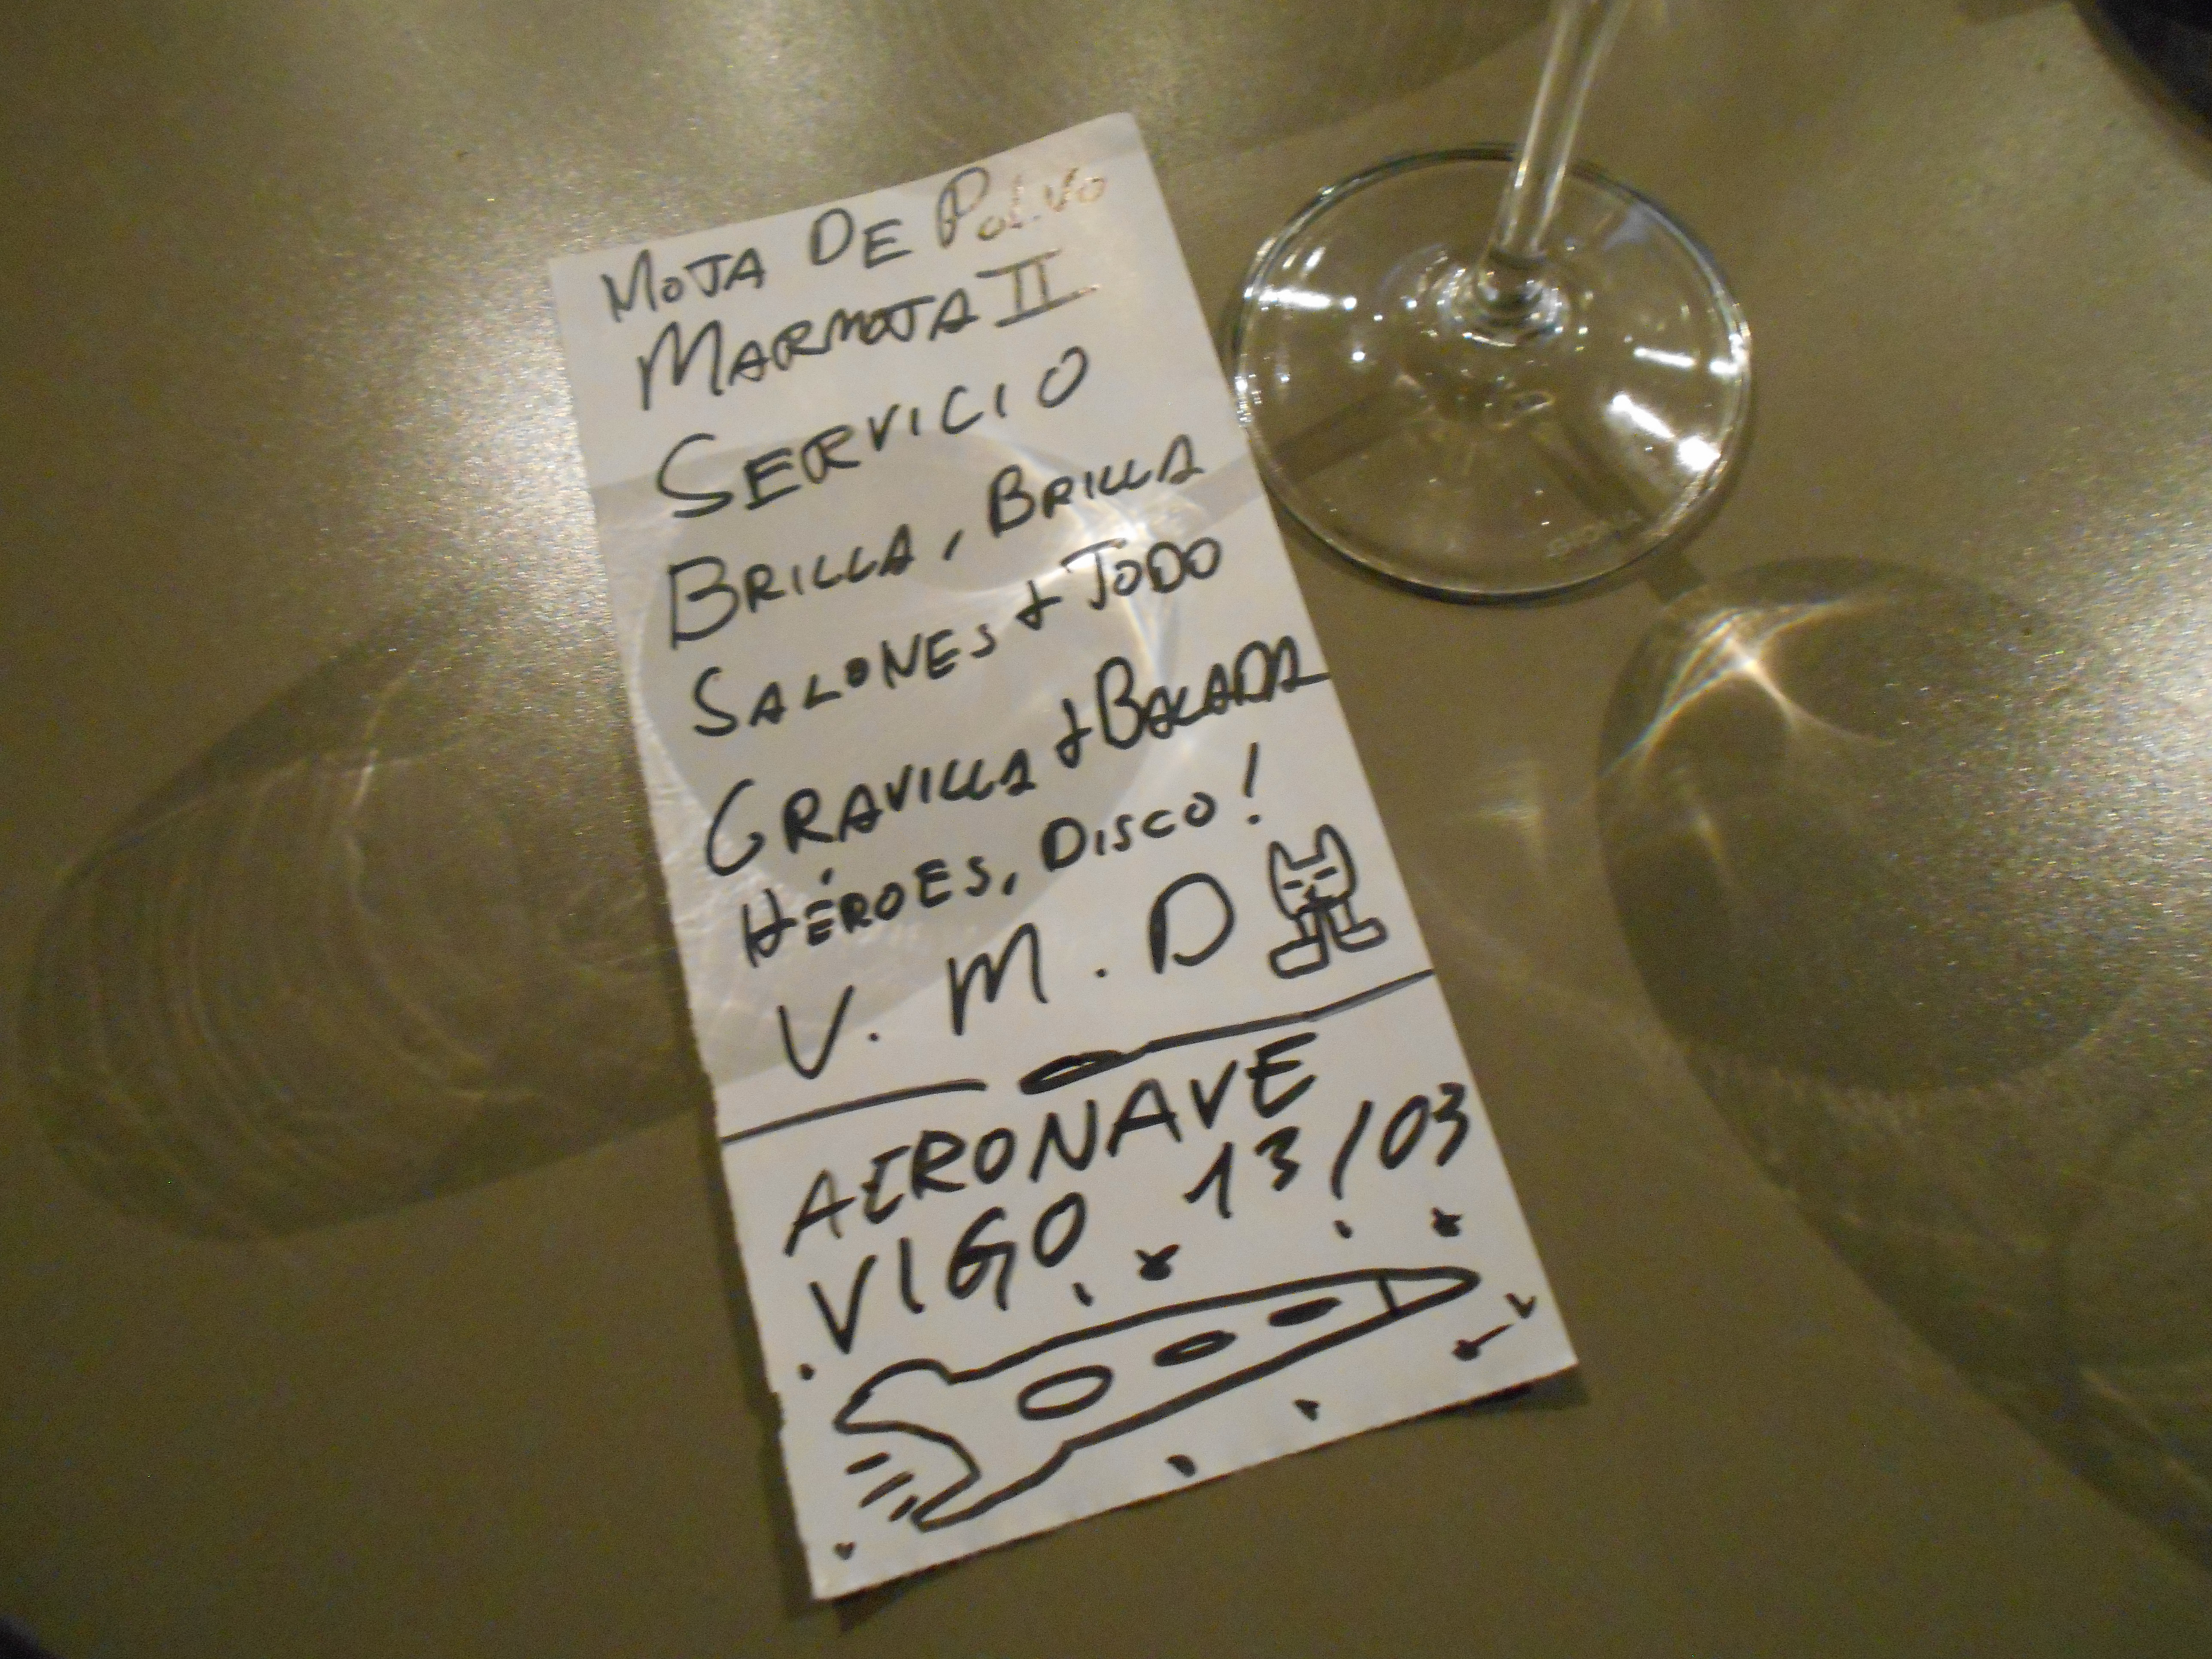 MOTA DE POLVO
MARMOTA II
SERVICIO
BRILLA, BRILLA
SALONES + TODO
GRAVILLA + BALADA
HÉROES, DISCO!
V. M. D
AERONAVE
VIGO 13/03